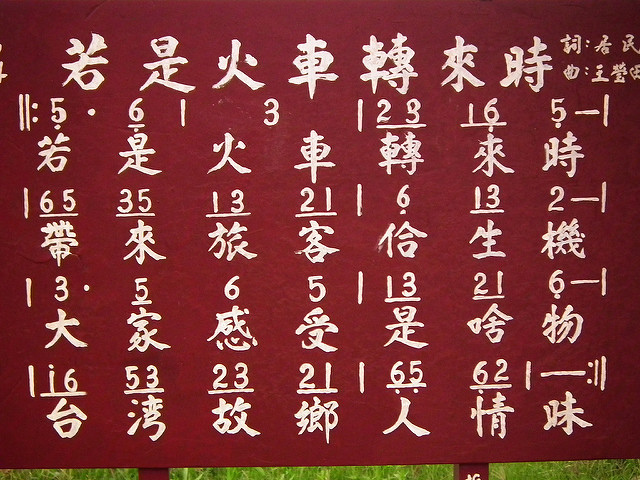 若是火車轉來時
詞：居民
曲：王瑩
‖: 5 · 6 | 3 | 2 3 1 6 5 — |
若是火車轉來時
| 6 5 3 5 1 3 2 1 | 6 1 3 2 — |
帶來旅客佮生機
| 3 · 5 6 5 | 1 3 2 1 6 — |
大家感受是啥物
| i 6 5 3 2 3 2 1 | 6 5 6 2 | — :‖
台湾故鄉人情味